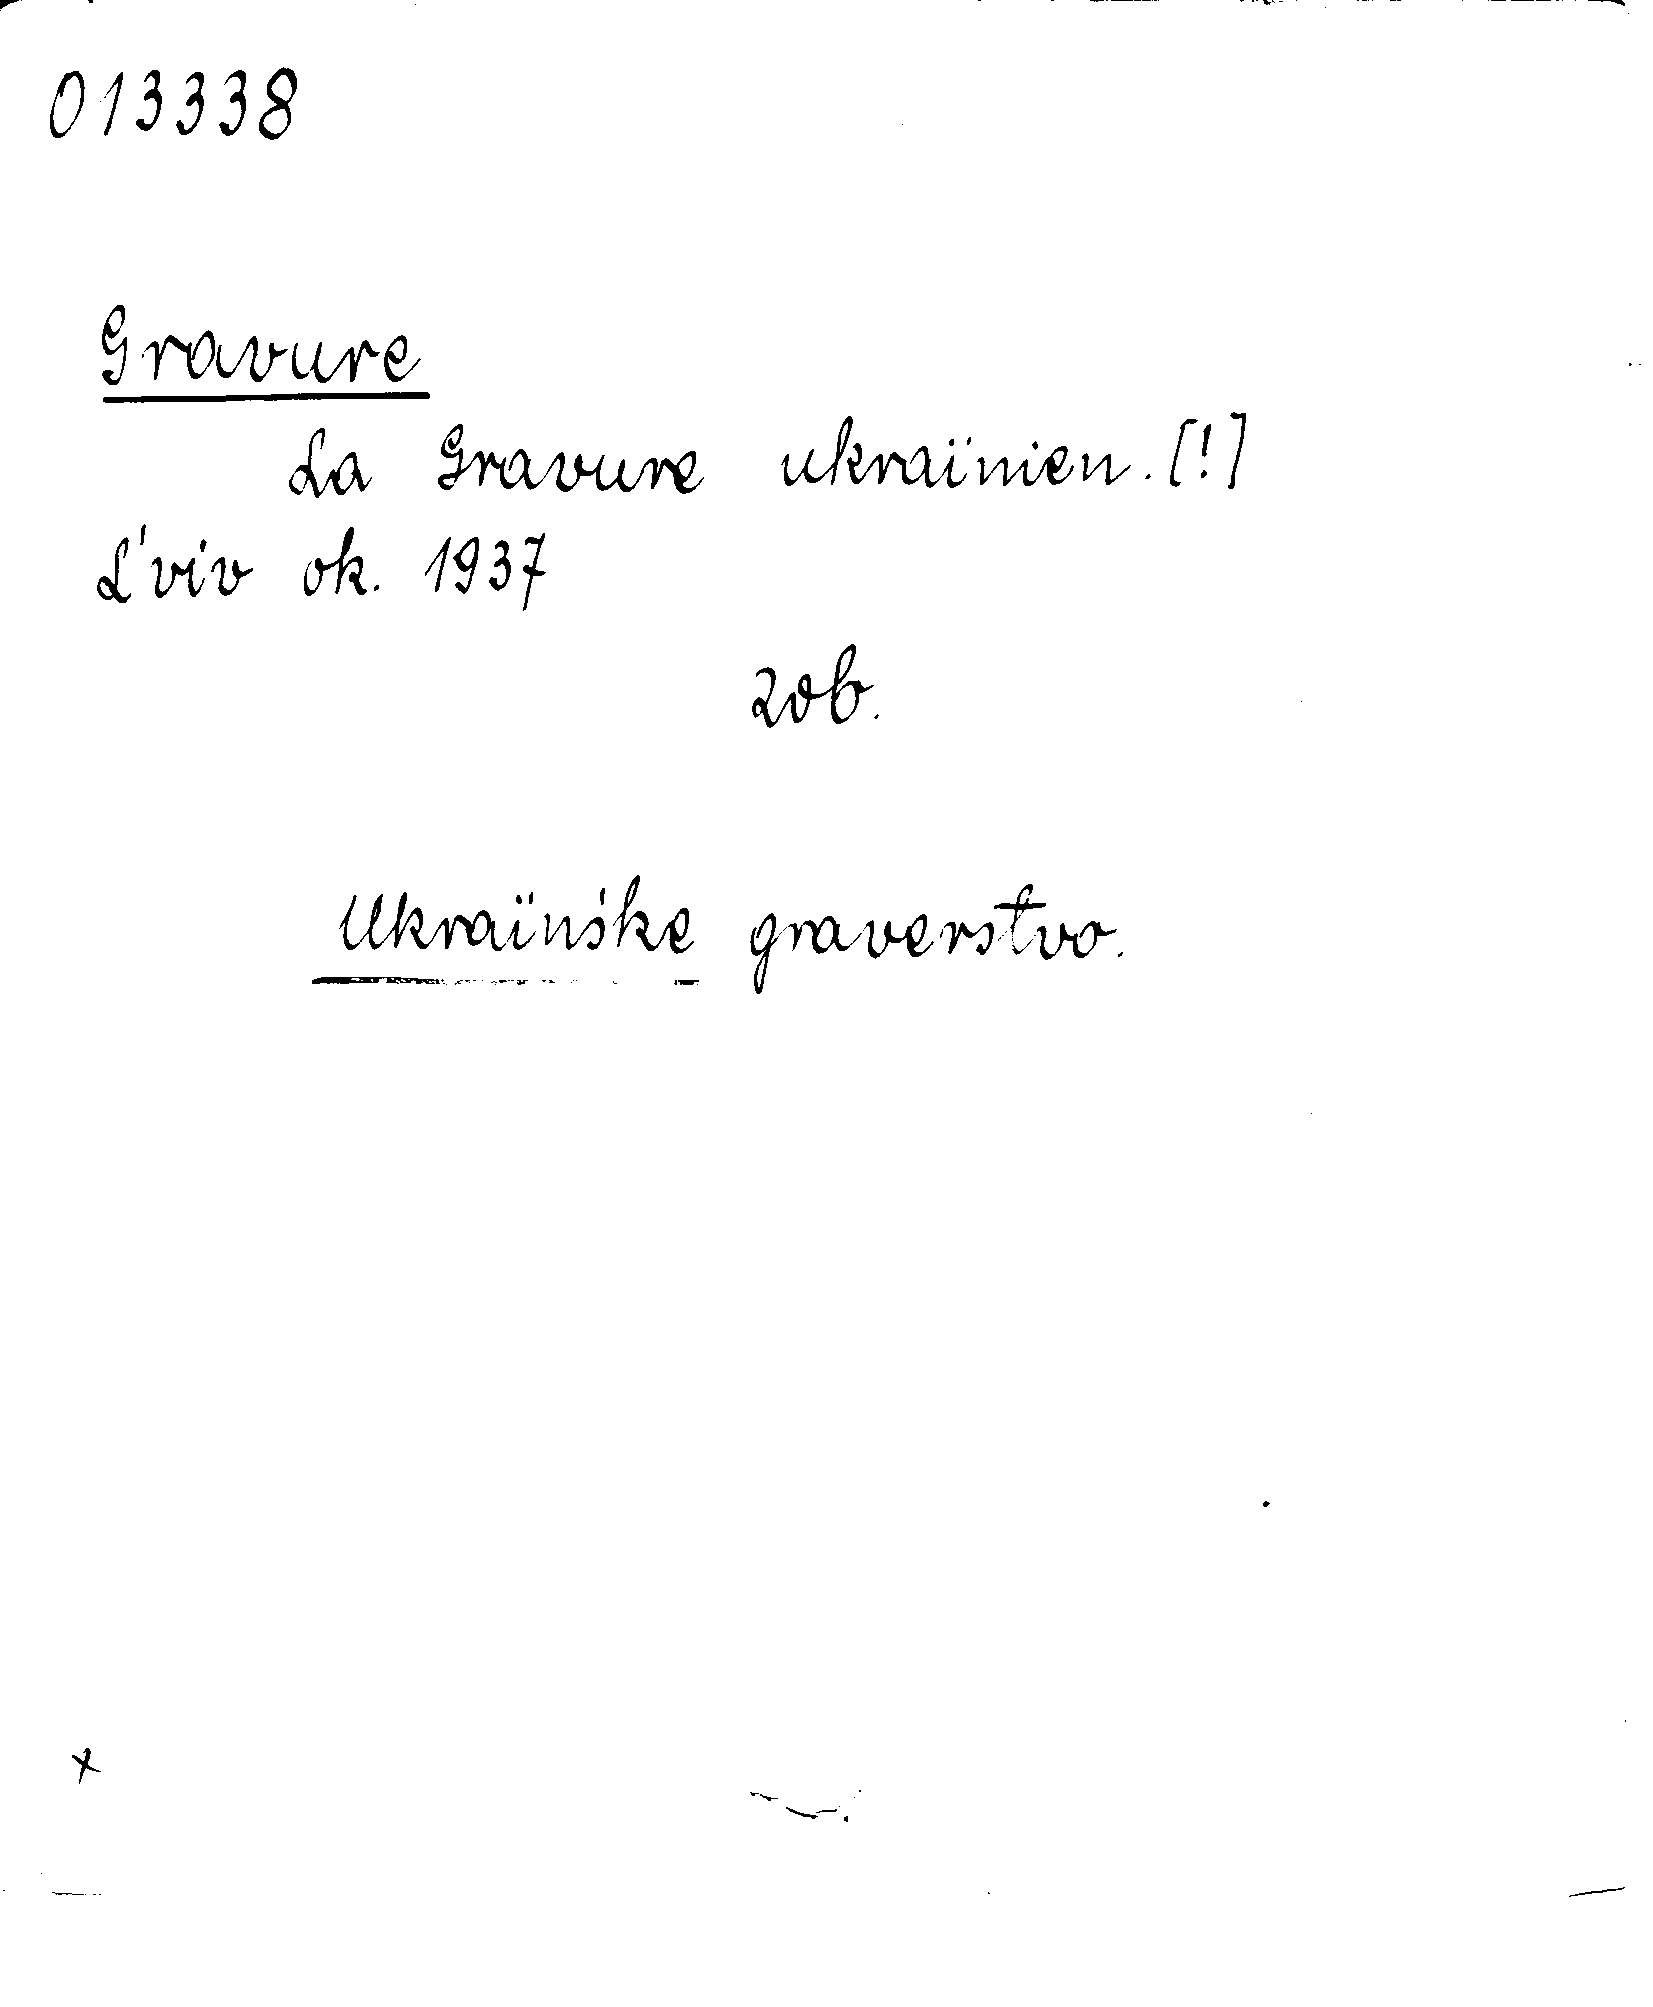 013338
Gravure
La Gravure ukraïnien. [!]
L'viv ok. 1937
zob.
Ukraïnśke graverstvo.
x